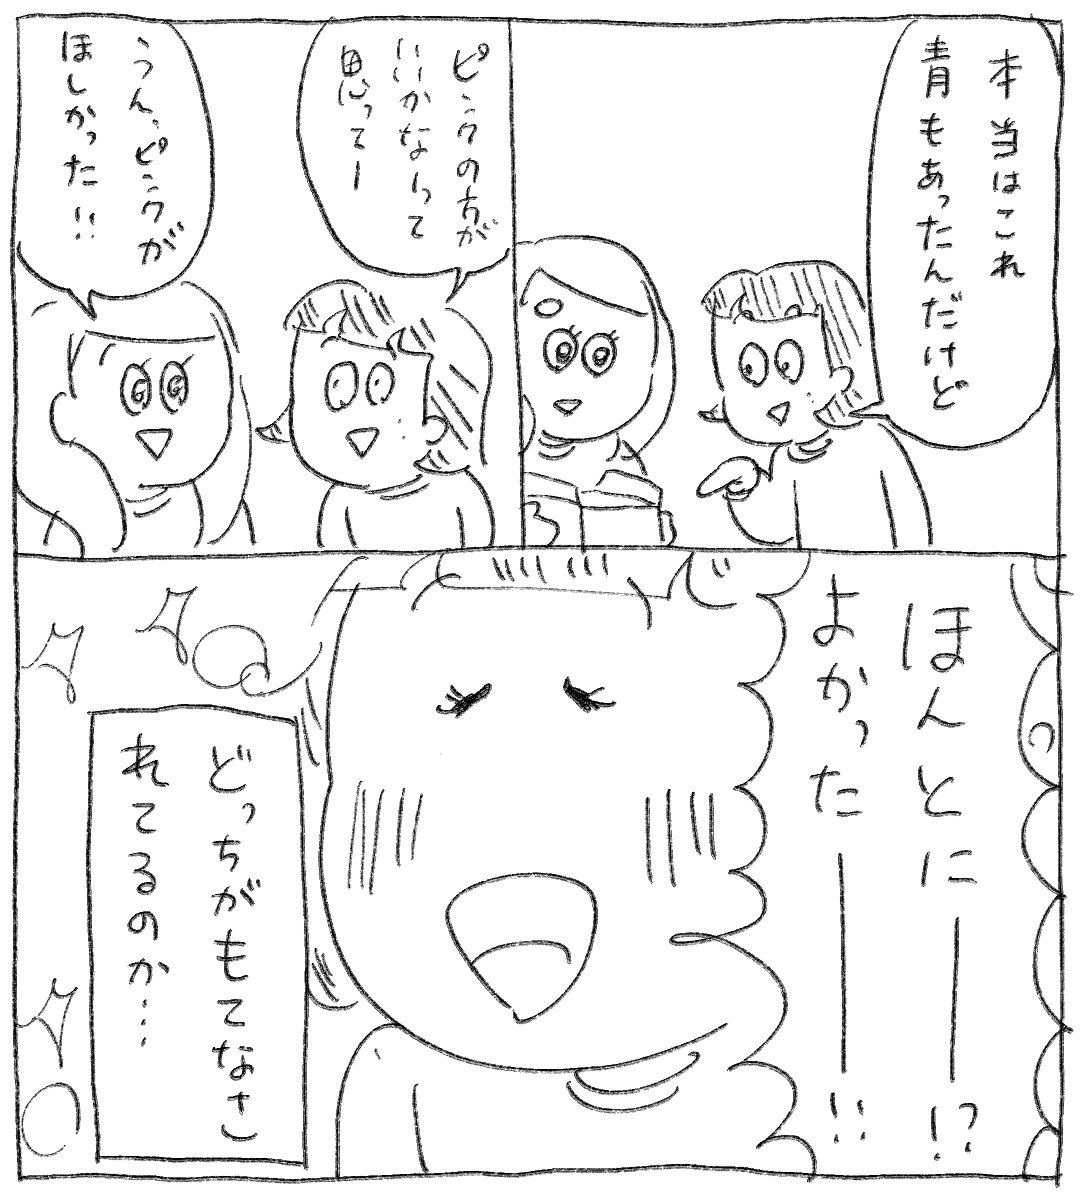 本当はこれ
青もあったんだけど
ピンクの方が
いいかなーって
思ってー
うん、ピンクが
ほしかった!!
ほんとにー!?
よかったー!!
どっちがもてなさ
れてるのか…